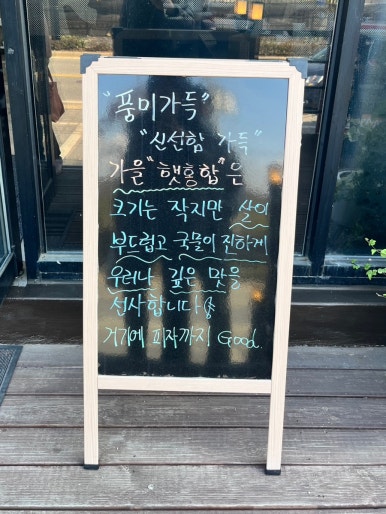 "풍미가득"
"신선함 가득"
가을 "햇홍합"은
크기는 작지만 살이
부드럽고 국물이 진하게
우러나 깊은 맛을
선사합니다
거기에 피자까지 Good.